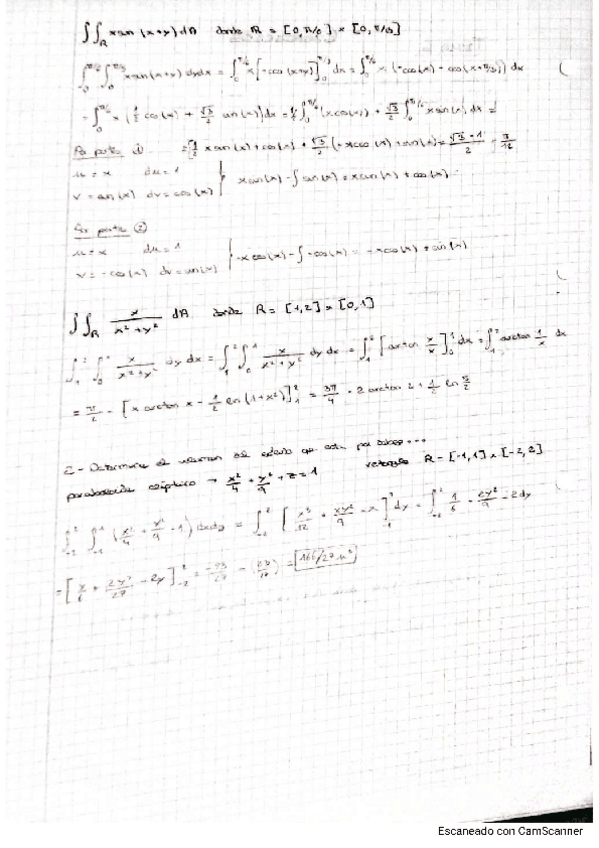 ∬_R x sen (x+y) dA donde R = [0, π/6] × [0, π/3]
∫_0^{π/6} ∫_0^{π/3} x sen(x+y) dy dx = ∫_0^{π/6} x [-cos(x+y)]_0^{π/3} dx = ∫_0^{π/6} x (+cos(x) - cos(x+π/3)) dx
= ∫_0^{π/6} x (1/2 cos(x) + √3/2 sen(x)) dx = 1/2 ∫_0^{π/6} (x cos(x)) + √3/2 ∫_0^{π/6} x sen(x) dx =
Por partes ① = [1/2 x sen(x) + cos(x) + √3/2 (-x cos(x) + sen(x)] = (√3 - 1)/2 - π/12
u = x du = 1
v = sen(x) dv = cos(x) } x sen(x) - ∫ sen(x) = x sen(x) + cos(x)
Por partes ②
u = x du = 1
v = -cos(x) dv = sen(x) } -x cos(x) - ∫ -cos(x) = -x cos(x) + sen(x)
∬_R x/(x²+y²) dA donde R = [1,2] × [0,1]
∫_1^2 ∫_0^1 x/(x²+y²) dy dx = ∫_1^2 ∫_0^1 x/(x²+y²) dy dx = ∫_1^2 [arctan y/x]_0^1 dx = ∫_1^2 arctan 1/x dx
= π/2 - [x arctan x - 1/2 ln(1+x²)]_1^2 = 3π/4 - 2 arctan 2 + 1/2 ln 5/2
2 - Determine el volumen del sólido que está por debajo
paraboloide elíptico → x²/4 + y²/9 + z = 1 rectángulo R - [-1,1] × [-2,2]
∫_{-2}^2 ∫_{-1}^1 (x²/4 + y²/9 - 1) dx dy = ∫_{-2}^2 [x³/12 + xy²/9 - x]_{-1}^1 dy = ∫_{-2}^2 1/6 + 2y²/9 - 2 dy
= [y/6 + 2y³/27 - 2y]_{-2}^2 = = 166/27 u³
Escaneado con CamScanner